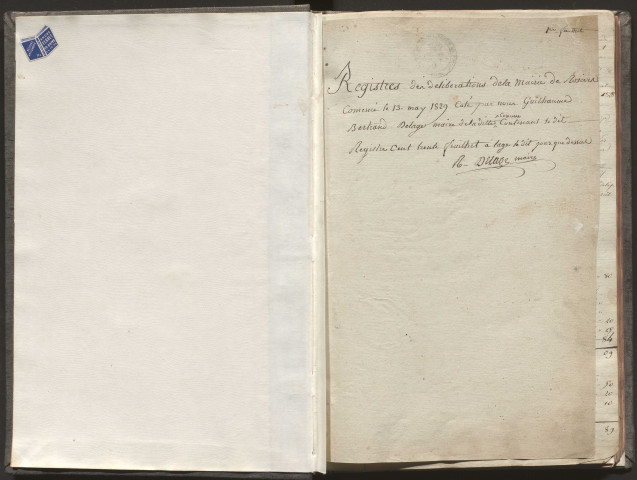 1er feuillet
Registres des deliberations de la Mairie de Rosiers
Comencé le 13 may 1829 Coté par nous Guilhaumme
Bertrand Delage maire de la ditte Commune Contenant le dit
Registre Cent trente feuillet a lage le dit jour que dessus
Delage maire